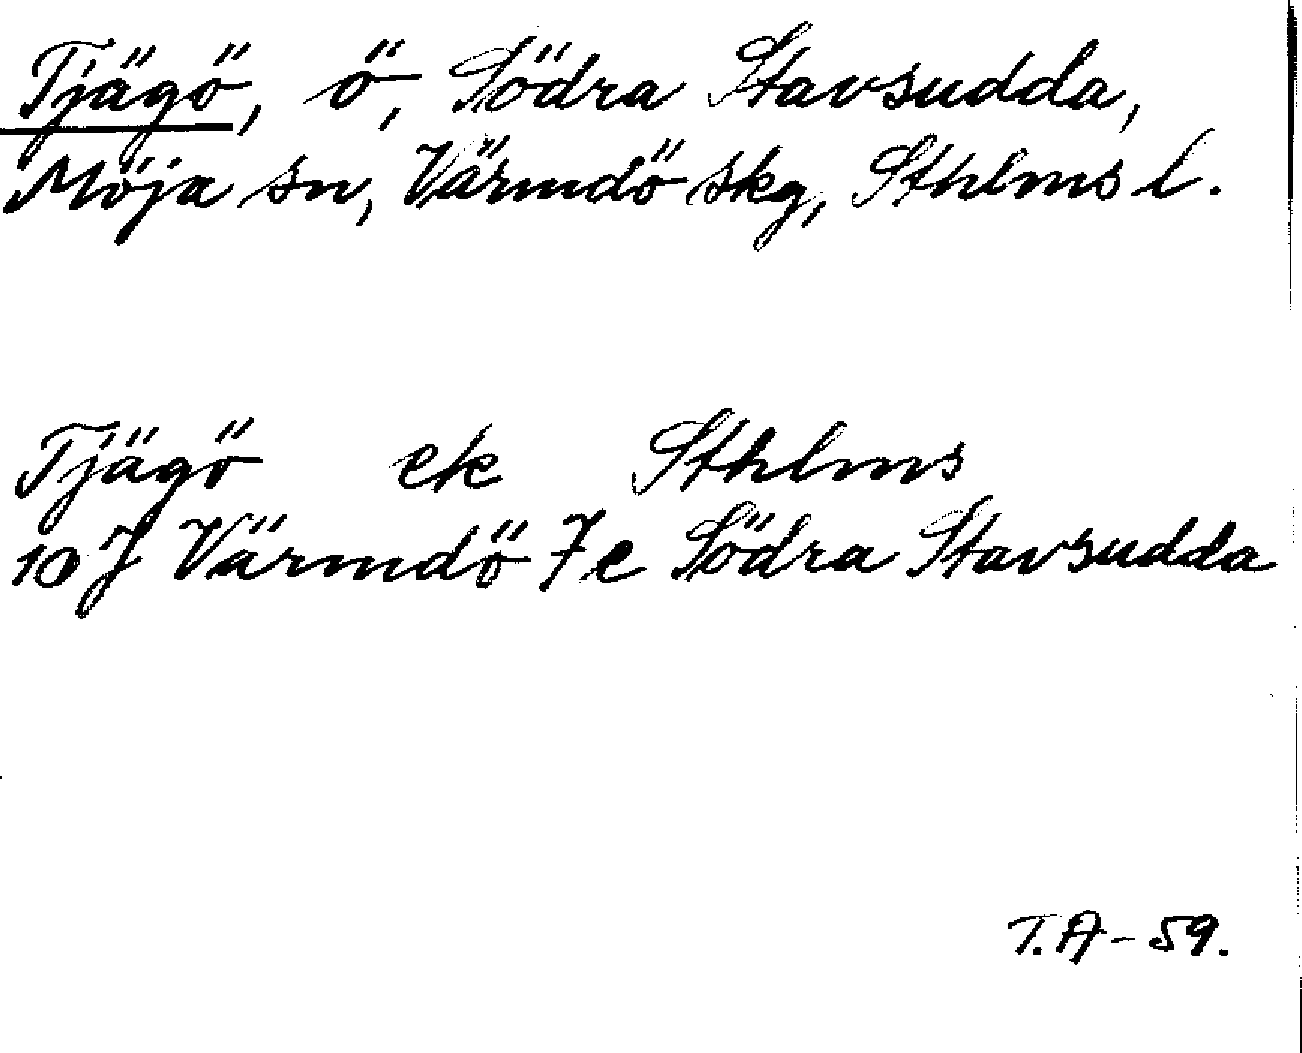 Tjägö, ö, Södra Stavsudda,
Möja sn, Värmdö skg, Sthlms l.
Tjägö ek Sthlms
10J Värmdö 7e Södra Stavsudda
T.A - 59.